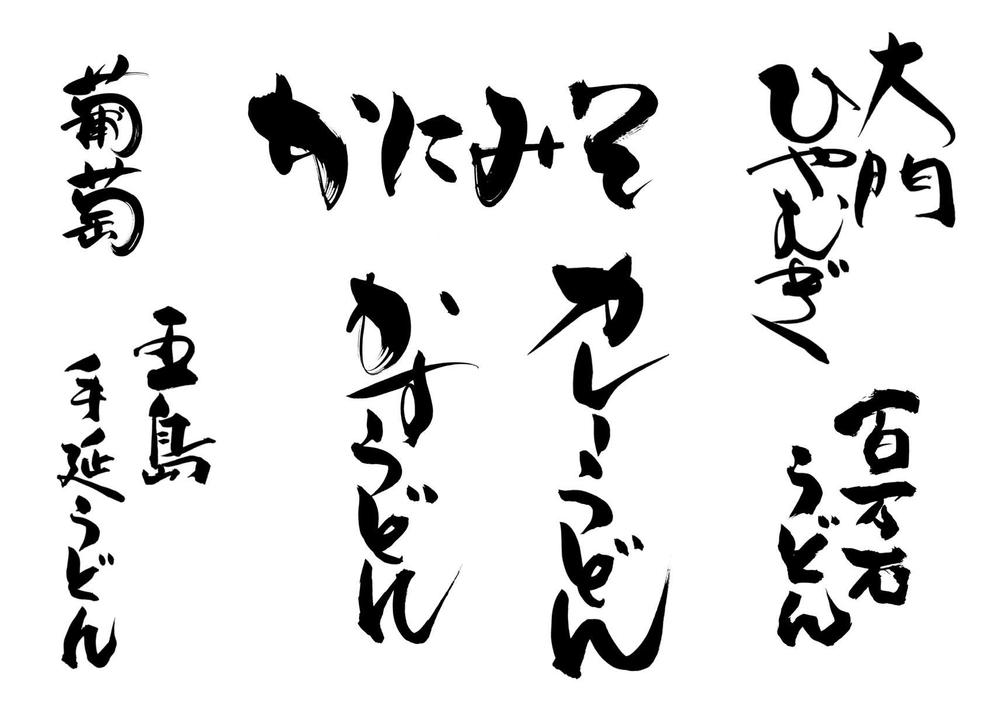 大門
ひやむぎ
百万石
うどん
かにみそ
カレーうどん
かすうどん
葡萄
五島
手延うどん